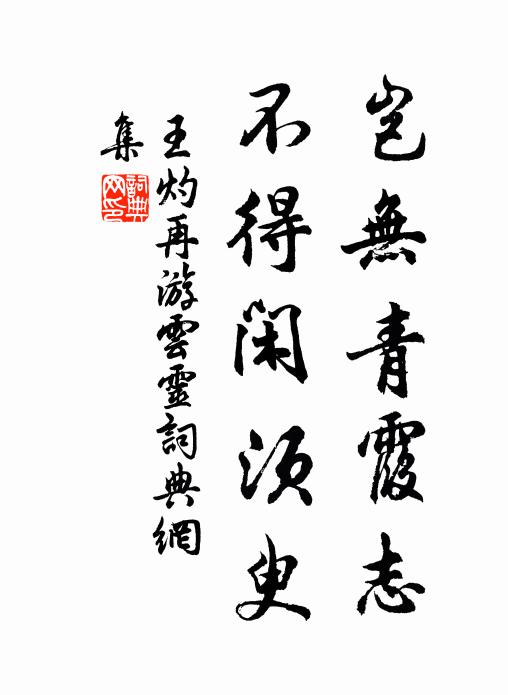 豈無青霞志
不得閑須臾
王灼再游雲靈詞典網
集
詞典
网印